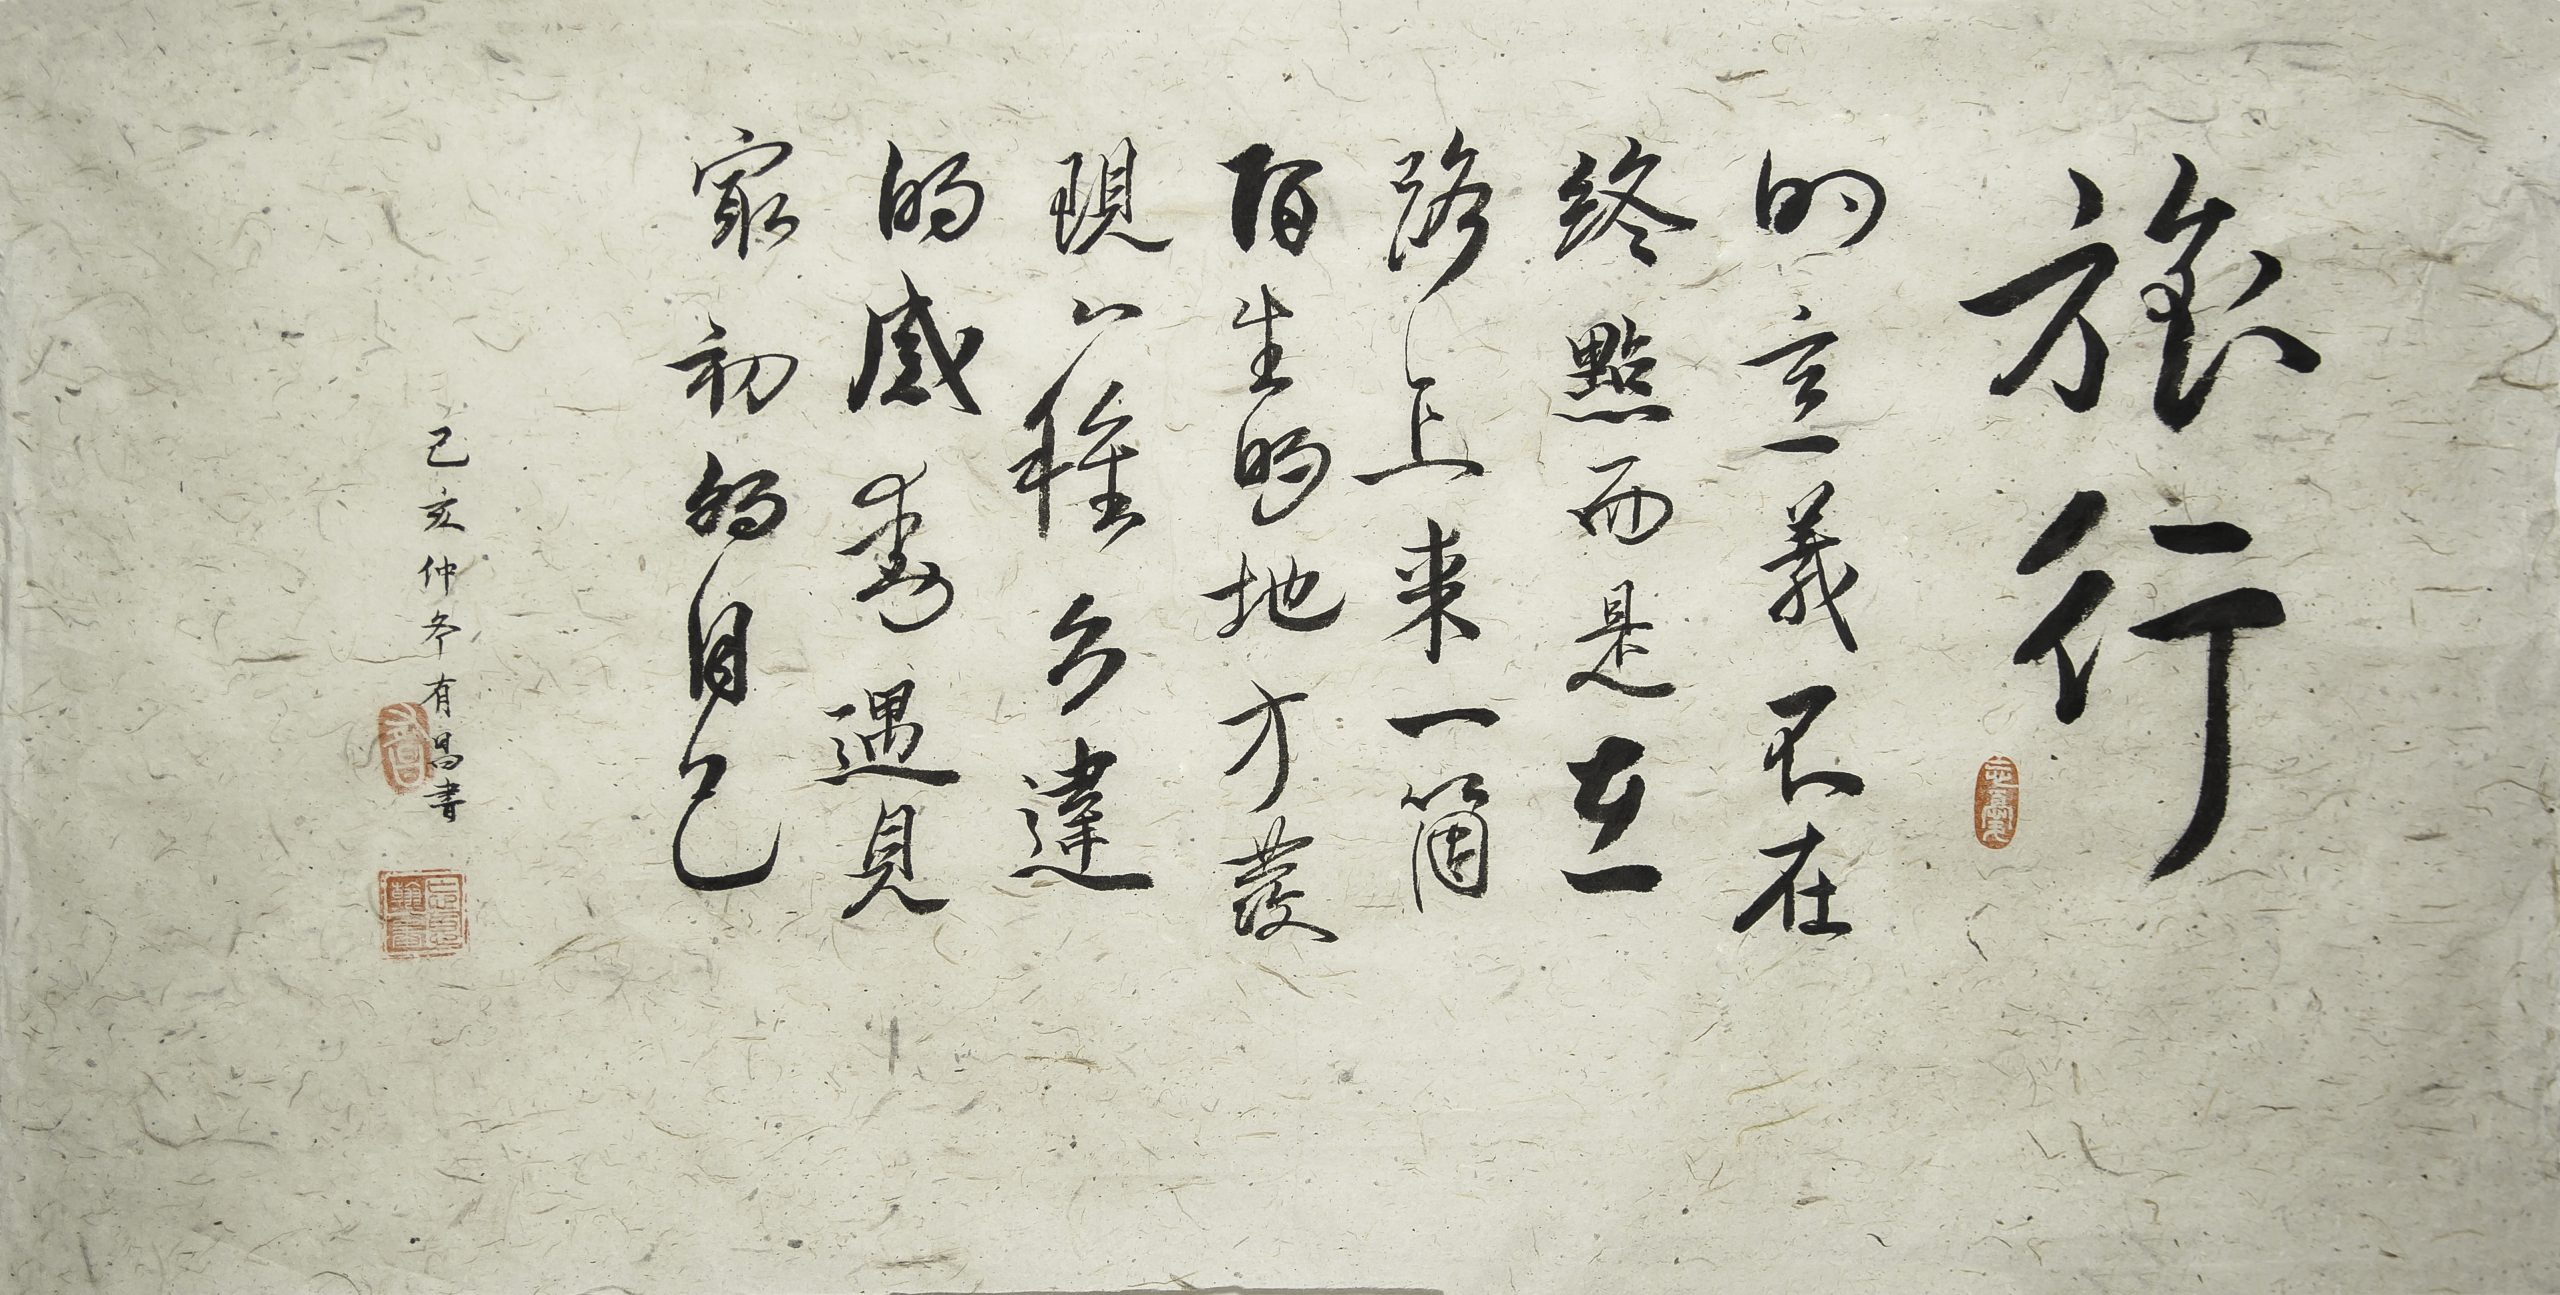 旅行
的意義不在
終點而是在
路上来一箇
陌生的地方發
現一種久違
的感動遇見
最初的自己
己亥仲冬有昌書